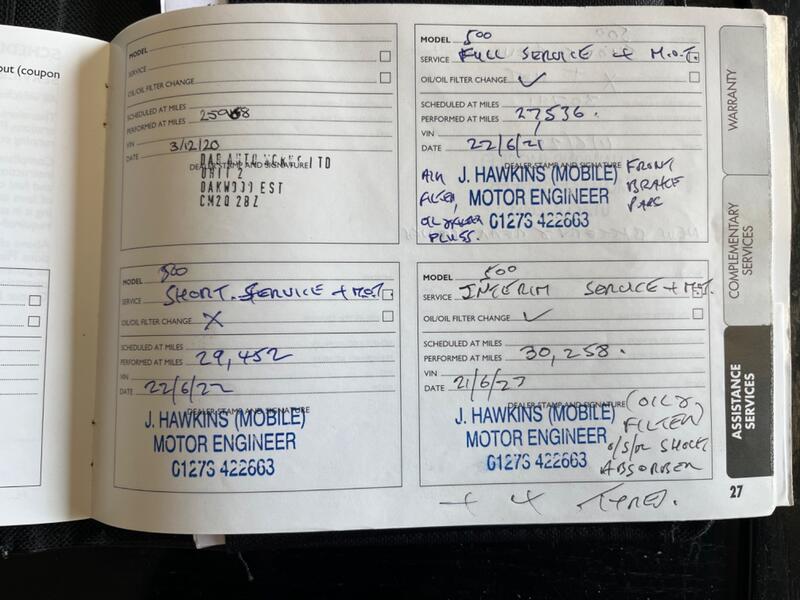 out (coupon
MODEL
SERVICE
OIL/OIL FILTER CHANGE
SCHEDULED AT MILES
PERFORMED AT MILES
VIN
DATE 3/12/20
DEALER STAMP AND SIGNATURE
UNIT 2
OAKWOOD EST
CM20 2BZ
MODEL 500
SERVICE FULL SERVICE + M.O.T.
OIL/OIL FILTER CHANGE ✓
SCHEDULED AT MILES
PERFORMED AT MILES 27536.
VIN
DATE 22/6/21
DEALER STAMP AND SIGNATURE
AIR
FILTER,
OIL FILTER
PLUGS.
J. HAWKINS (MOBILE)
MOTOR ENGINEER
01273 422663
FRONT
BRAKE
PADS
MODEL 500
SERVICE SHORT. SERVICE + M.O.T.
OIL/OIL FILTER CHANGE X
SCHEDULED AT MILES
PERFORMED AT MILES 29,452
VIN
DATE 22/6/22
DEALER STAMP AND SIGNATURE
J. HAWKINS (MOBILE)
MOTOR ENGINEER
01273 422663
MODEL 500
SERVICE INTERIM SERVICE + M.O.T.
OIL/OIL FILTER CHANGE ✓
SCHEDULED AT MILES
PERFORMED AT MILES 30,258.
VIN
DATE 21/6/23
DEALER STAMP AND SIGNATURE
J. HAWKINS (MOBILE)
MOTOR ENGINEER
01273 422663
(OIL &
FILTER)
O/S/R SHOCK
ABSORBER
+ 4 TYRES.
WARRANTY
COMPLEMENTARY
SERVICES
ASSISTANCE
SERVICES
27